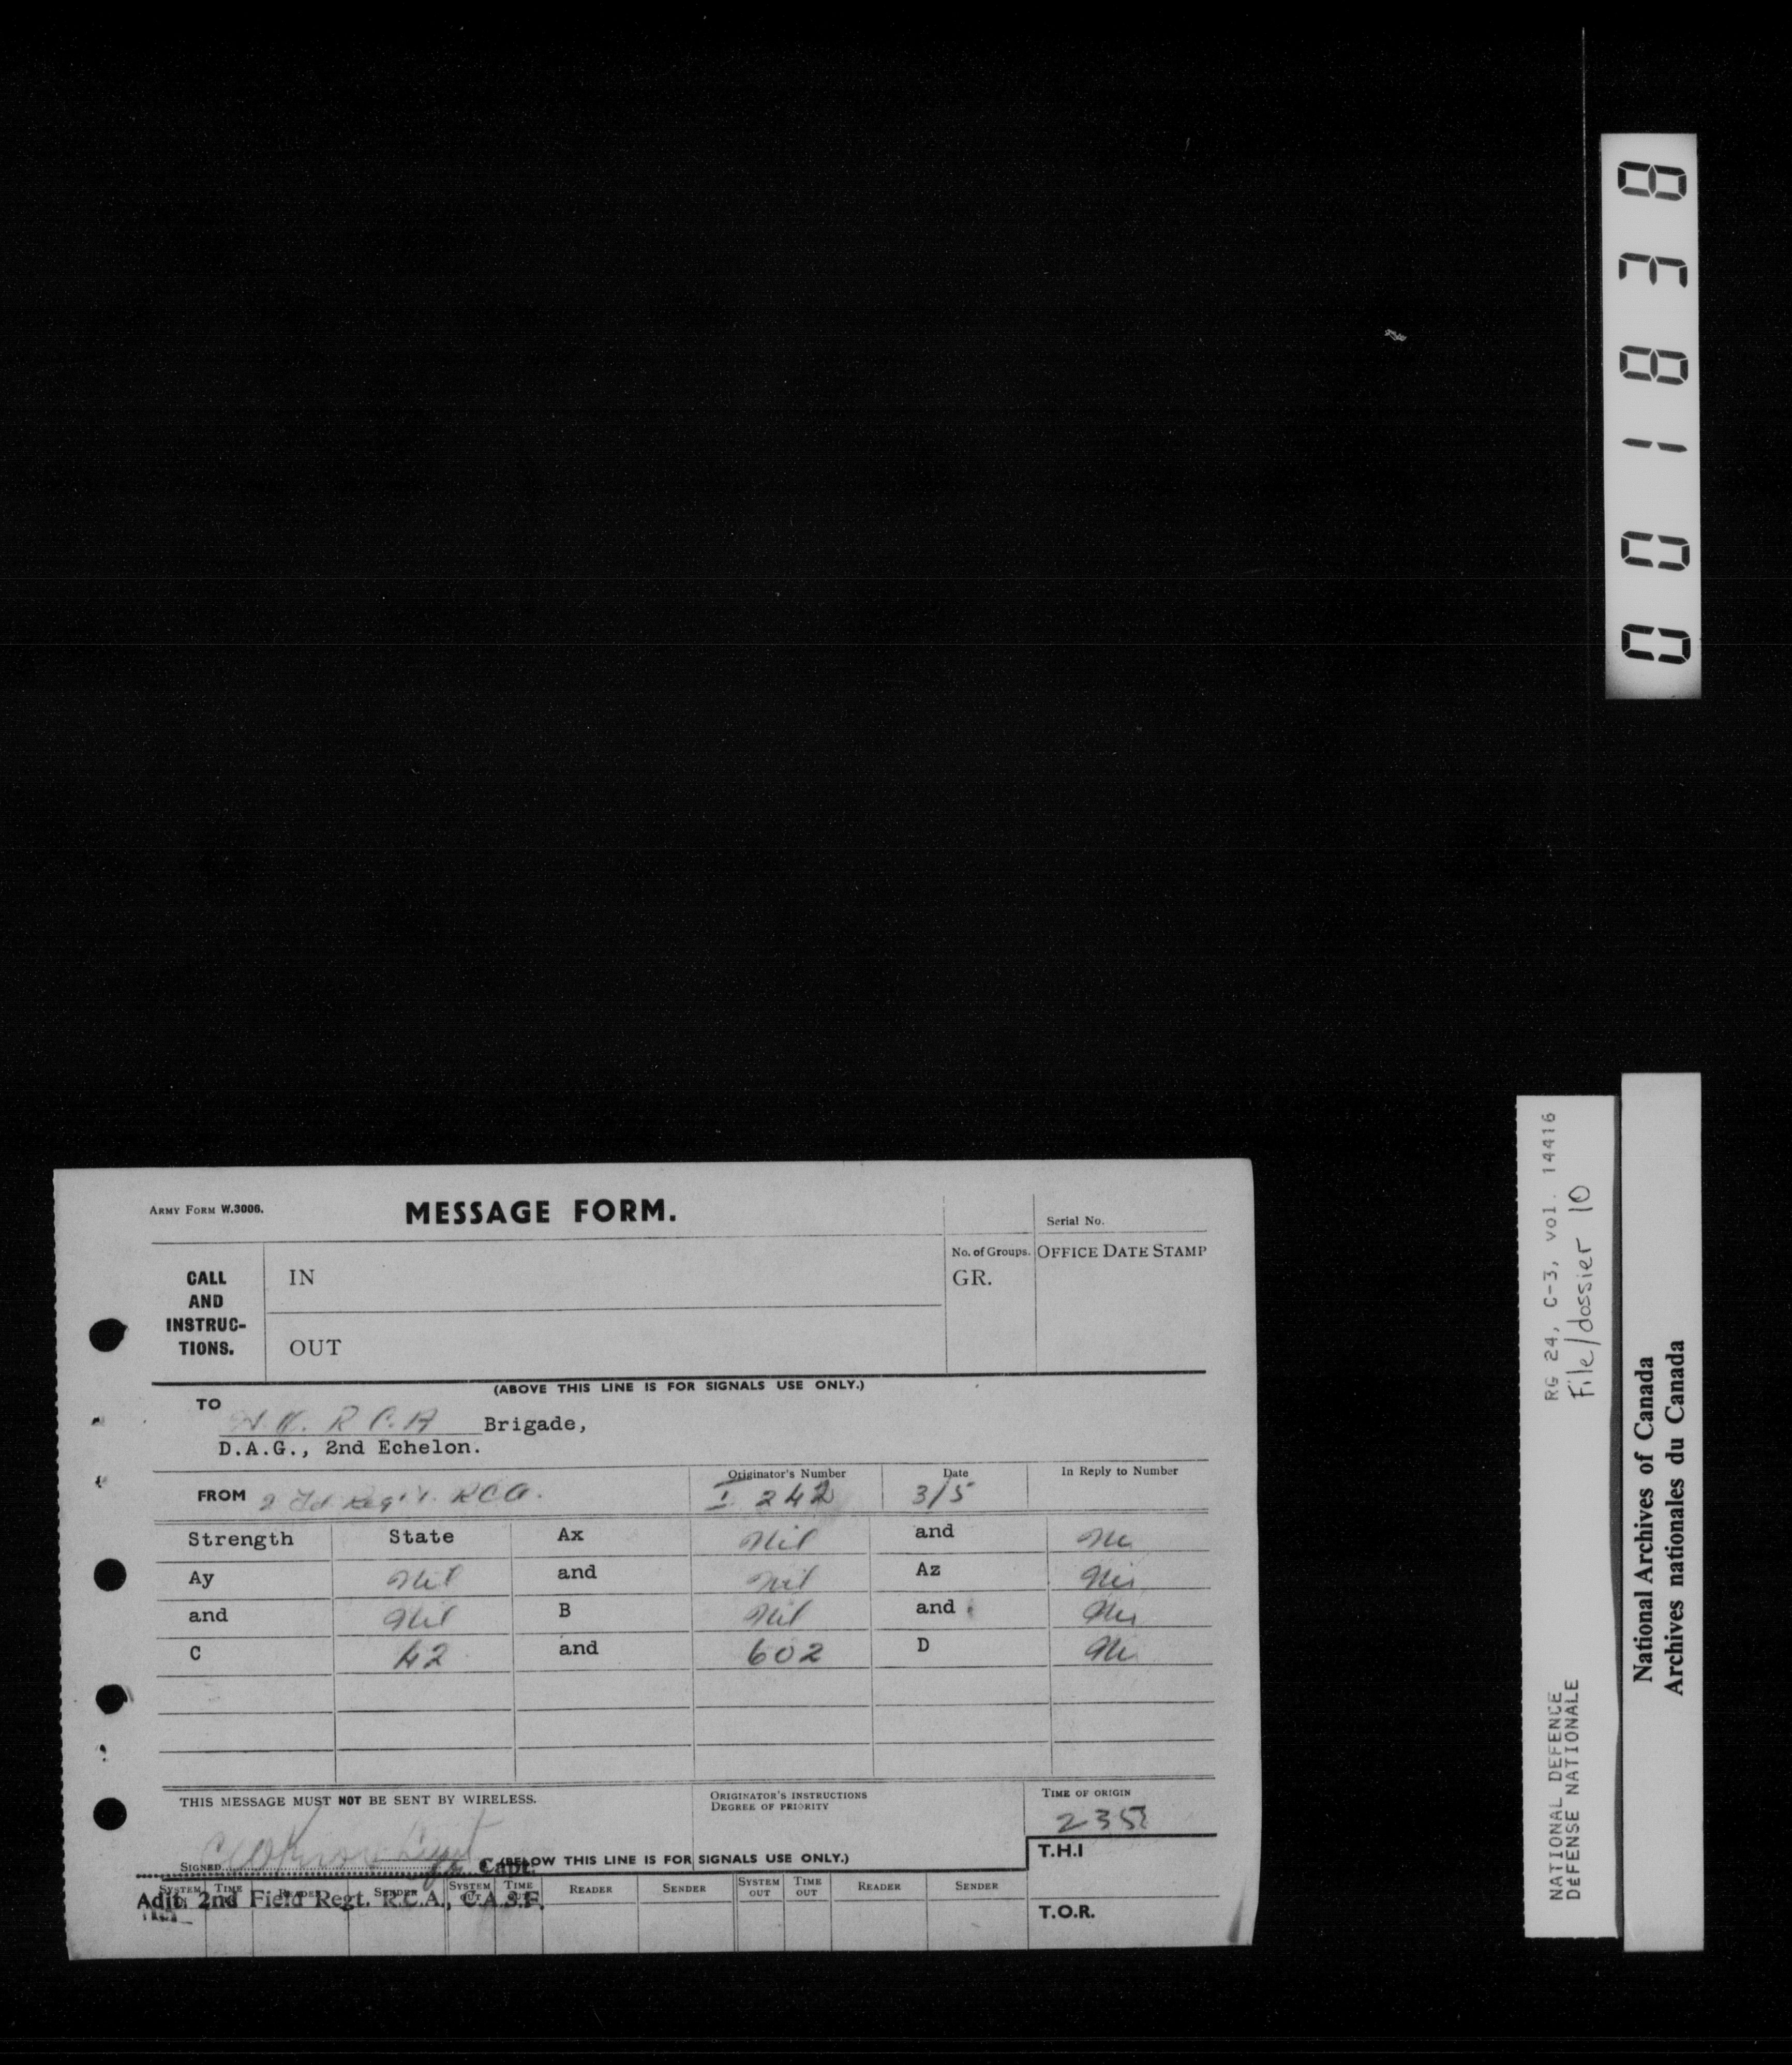 001838
ARMY FORM W.3006.
MESSAGE FORM.
Serial No.
CALL AND INSTRUC- TIONS.
IN
No. of Groups.
GR.
OFFICE DATE STAMP
OUT
(ABOVE THIS LINE IS FOR SIGNALS USE ONLY.)
TO
R C A Brigade,
D.A.G., 2nd Echelon.
FROM 2 Fd Reg't. RCA.
Originator's Number
I 242
Date
3/5
In Reply to Number
Strength State Ax Nil and Nil
Ay Nil and Nil Az Nil
and Nil B Nil and Nil
C 42 and 602 D Nil
THIS MESSAGE MUST NOT BE SENT BY WIRELESS.
ORIGINATOR'S INSTRUCTIONS
DEGREE OF PRIORITY
TIME OF ORIGIN
SIGNED
Capt.
(BELOW THIS LINE IS FOR SIGNALS USE ONLY.)
T.H.I
SYSTEM TIME READER SENDER SYSTEM TIME READER SENDER SYSTEM OUT TIME OUT READER SENDER
Adjt. 2nd Field Regt. R.C.A., C.A.S.F.
T.O.R.
RG 24, C-3, vol. 14416
File/dossier 10
NATIONAL DEFENCE
DÉFENSE NATIONALE
National Archives of Canada
Archives nationales du Canada